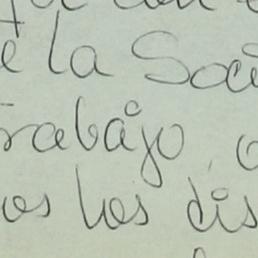 e la Soci
trabajo, o
os los dis